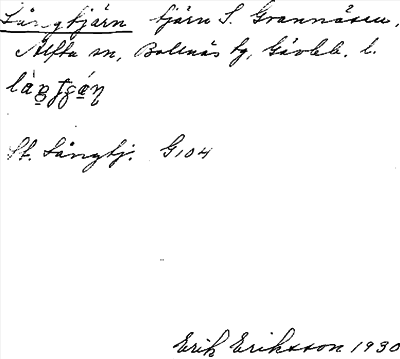 Långtjärn tjärn S. Grannåsen,
Alfta sn, Bollnäs tg, Gävleb. l.
St. Långtj. G104
Erik Eriksson 1930